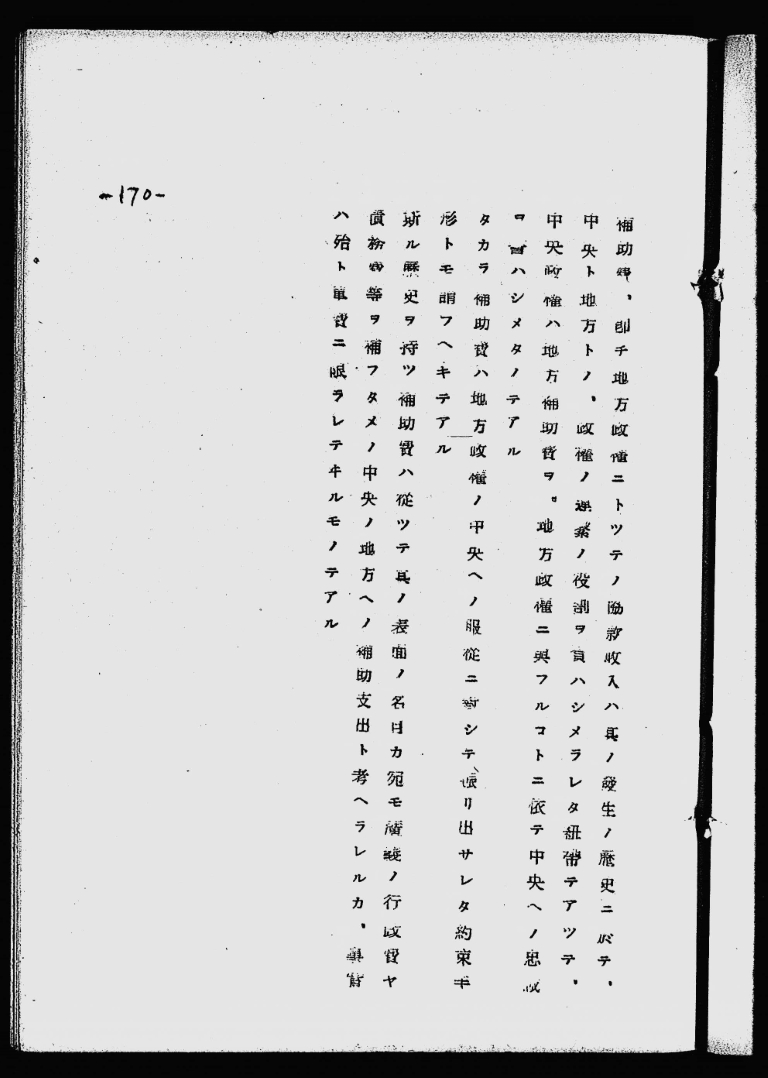 補助費、卽チ地方政權ニトツテノ協款收入ハ其ノ發生ノ歷史ニ於テ、
中央ト地方トノ、政權ノ連繫ノ役割ヲ負ハシメラレタ紐帶テアツテ、
中央政權ハ地方補助費ヲ。地方政權ニ與フルコトニ依テ中央ヘノ忠誠
ヲ誓ハシメタノテアル
タカラ補助費ハ地方政權ノ中央ヘノ服從ニ對シテ振リ出サレタ約束手
形トモ謂フヘキテアル
斯ル歷史ヲ持ツ補助費ハ從ツテ其ノ表面ノ名目カ宛モ廣義ノ行政費ヤ
債務費等ヲ補フタメノ中央ノ地方ヘノ補助支出ト考ヘラレルカ、事實
ハ殆ト軍費ニ限ラレテヰルモノテアル
-170-